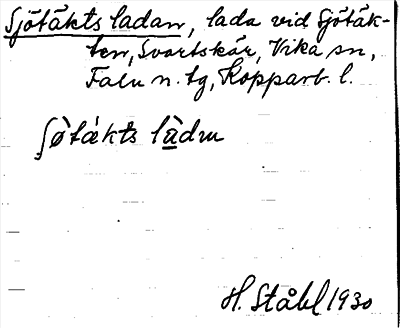 Sjötäkts ladan, lada vid Sjötäk-
ten, Svartskär, Vika sn,
Falu n. tg, Kopparb. l.
ʃø̀tǽkts làdɴ
H. Ståhl 1930